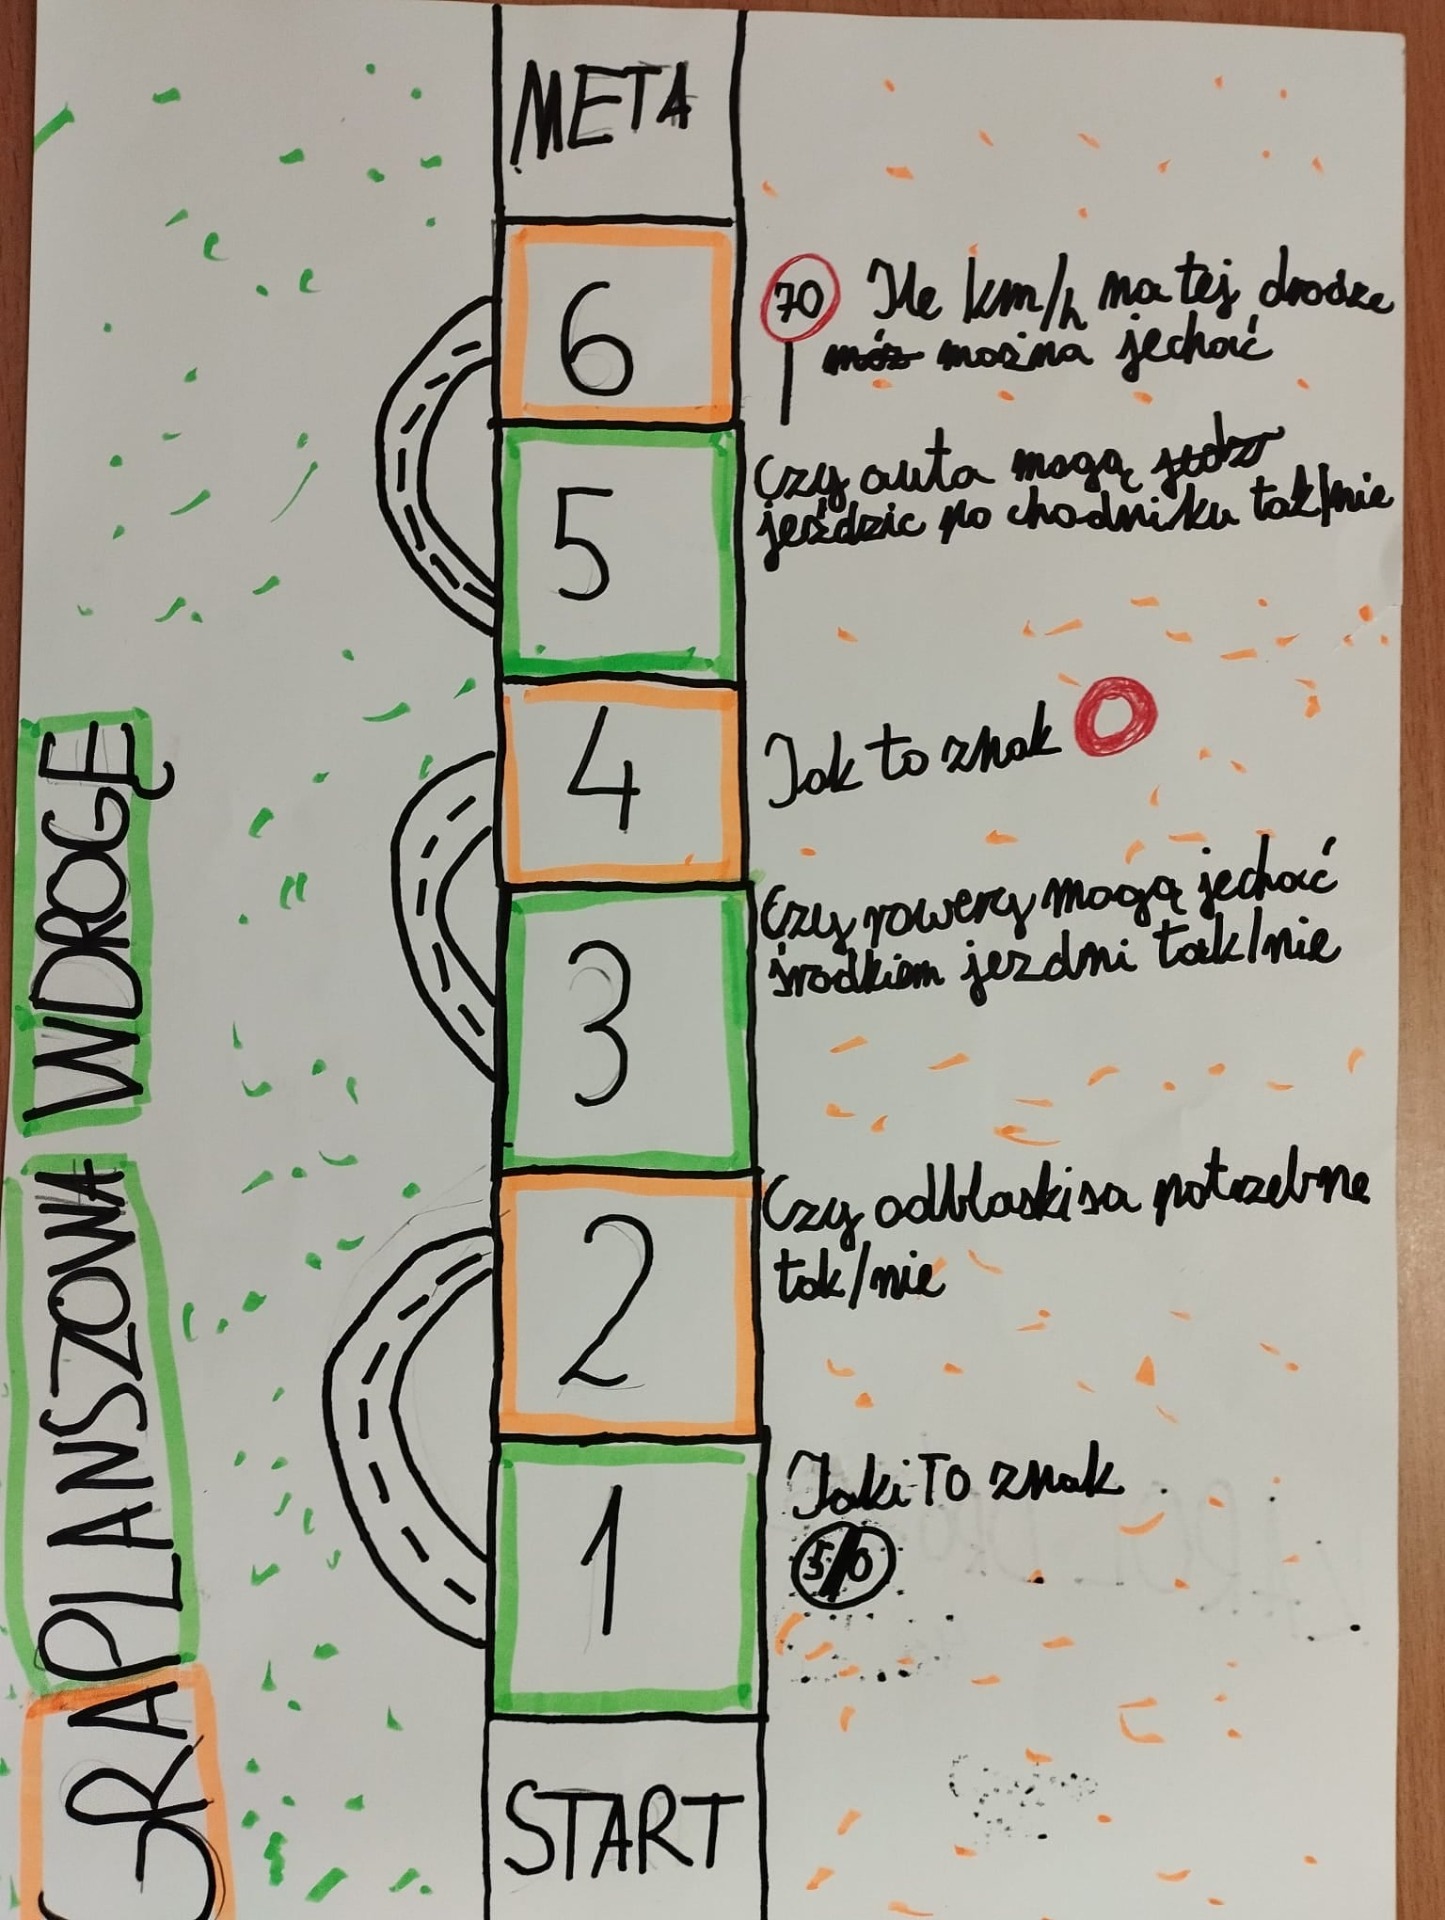 META
6
70 Ile km/h na tej drodze
móż można jechać
5
Czy auta mogą
jeździc po chodniku tak/nie
4
Jak to znak
3
Czy rowery mogą jechać
środkiem jezdni tak/nie
2
Czy odblaski sa potrzebne
tak/nie
1
Jaki To znak
50
START
GRA PLANSZOWA W DROGĘ